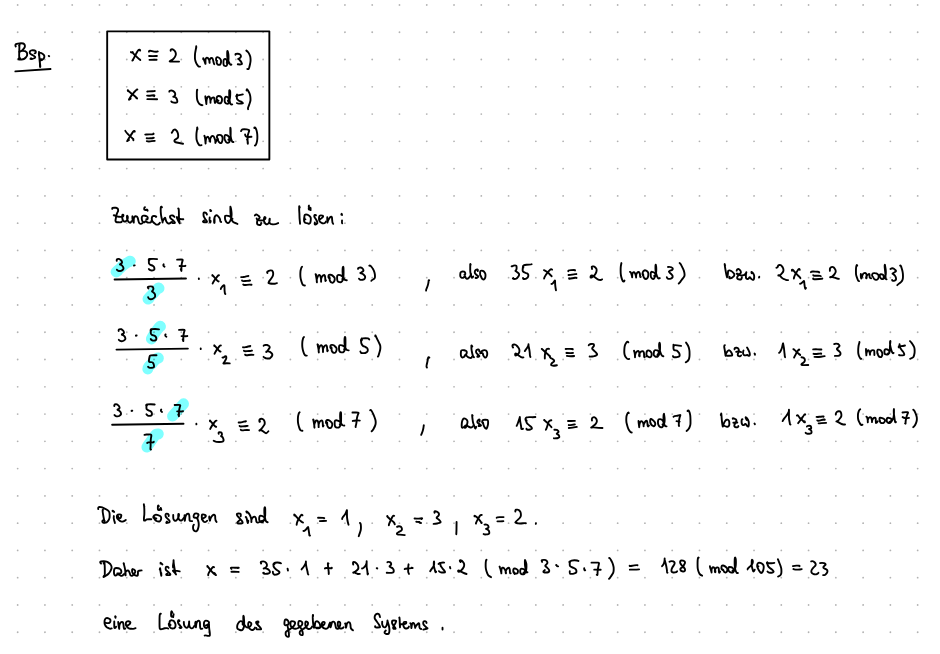 Bsp.
x ≡ 2 (mod 3)
x ≡ 3 (mod 5)
x ≡ 2 (mod 7)
Zunächst sind zu lösen:
3 · 5 · 7 / 3 · x₁ ≡ 2 (mod 3) , also 35 x₁ ≡ 2 (mod 3) bzw. 2x₁ ≡ 2 (mod 3)
3 · 5 · 7 / 5 · x₂ ≡ 3 (mod 5) , also 21 x₂ ≡ 3 (mod 5) bzw. 1x₂ ≡ 3 (mod 5)
3 · 5 · 7 / 7 · x₃ ≡ 2 (mod 7) , also 15 x₃ ≡ 2 (mod 7) bzw. 1x₃ ≡ 2 (mod 7)
Die Lösungen sind x₁ = 1, x₂ = 3, x₃ = 2.
Daher ist x = 35 · 1 + 21 · 3 + 15 · 2 (mod 3 · 5 · 7) = 128 (mod 105) = 23
eine Lösung des gegebenen Systems.